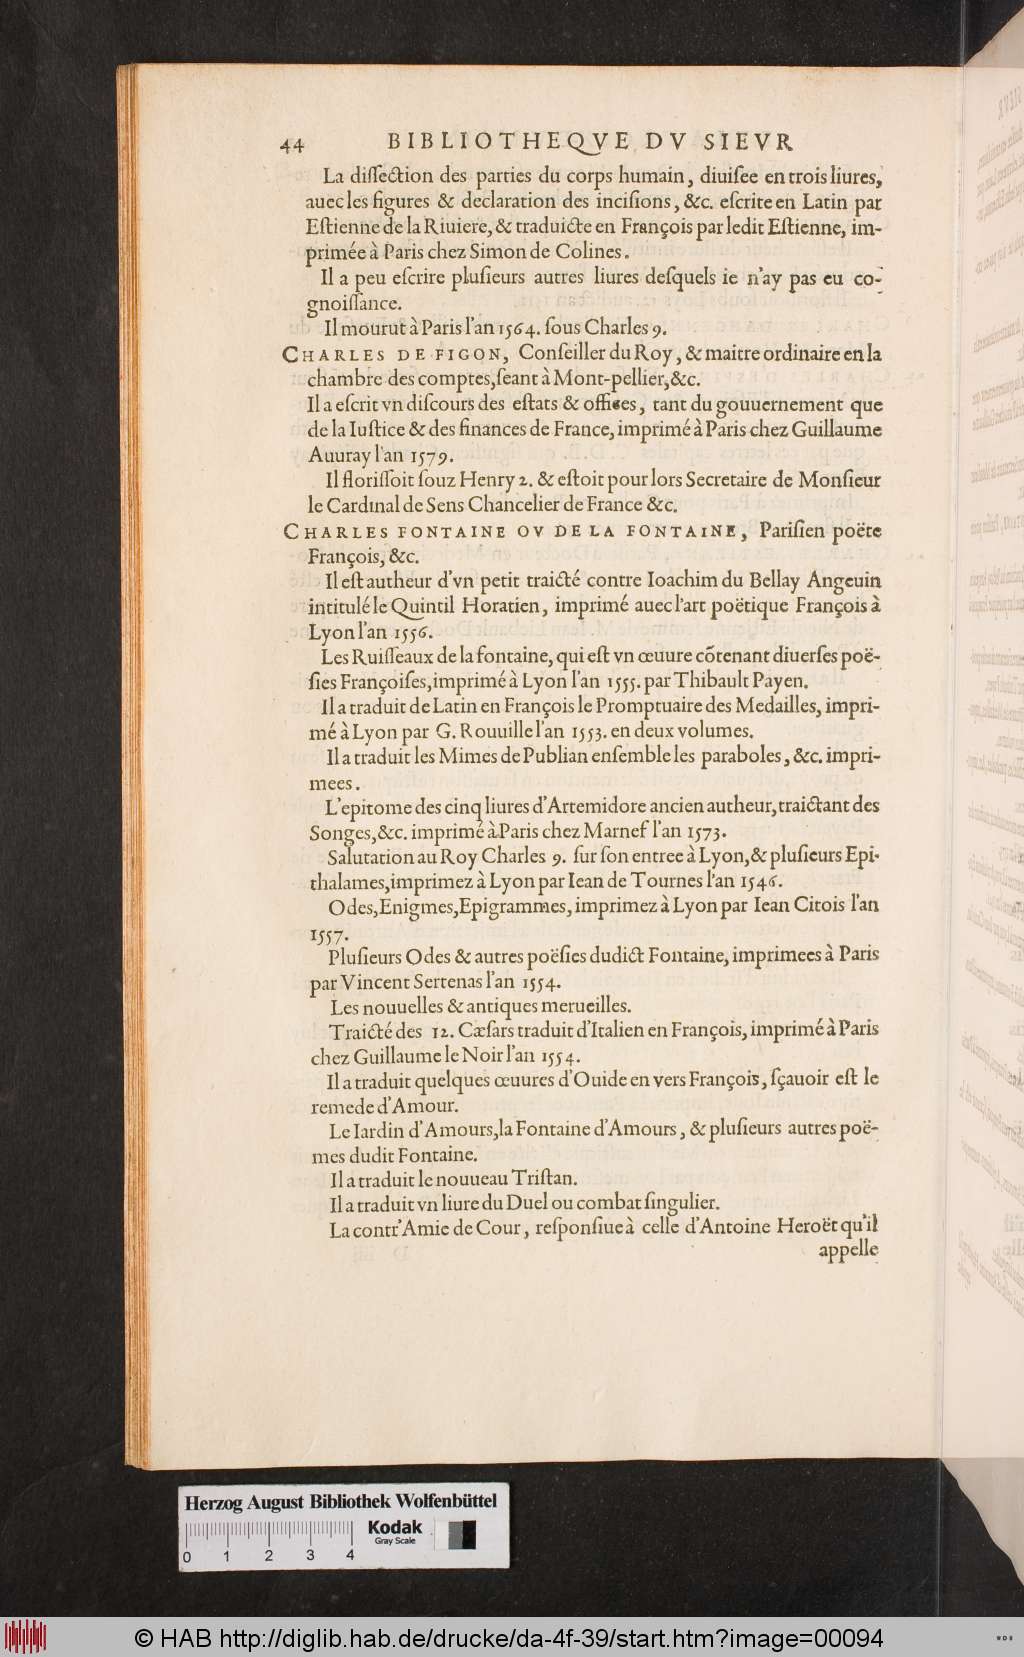 44 BIBLIOTHEQVE DV SIEVR
La diſſection des parties du corps humain, diuiſee en trois liures,
auec les figures & declaration des inciſions, &c. eſcrite en Latin par
Eſtienne de la Riuiere, & traduicte en François par ledit Eſtienne, im-
primée à Paris chez Simon de Colines.
Il a peu eſcrire pluſieurs autres liures deſquels ie n'ay pas eu co-
gnoiſſance.
Il mourut à Paris l'an 1564. ſous Charles 9.
CHARLES DE FIGON, Conſeiller du Roy, & maitre ordinaire en la
chambre des comptes, ſeant à Mont-pellier, &c.
Il a eſcrit vn diſcours des eſtats & offices, tant du gouuernement que
de la Iuſtice & des finances de France, imprimé à Paris chez Guillaume
Auuray l'an 1579.
Il floriſſoit ſouz Henry 2. & eſtoit pour lors Secretaire de Monſieur
le Cardinal de Sens Chancelier de France &c.
CHARLES FONTAINE OV DE LA FONTAINE, Pariſien poëte
François, &c.
Il eſt autheur d'vn petit traicté contre Ioachim du Bellay Angeuin
intitulé le Quintil Horatien, imprimé auec l'art poëtique François à
Lyon l'an 1556.
Les Ruiſſeaux de la fontaine, qui eſt vn œuure cõtenant diuerſes poë-
ſies Françoiſes, imprimé à Lyon l'an 1555. par Thibault Payen.
Il a traduit de Latin en François le Promptuaire des Medailles, impri-
mé à Lyon par G. Rouuille l'an 1553. en deux volumes.
Il a traduit les Mimes de Publian enſemble les paraboles, &c. impri-
mees.
L'epitome des cinq liures d'Artemidore ancien autheur, traictant des
Songes, &c. imprimé à Paris chez Marnef l'an 1573.
Salutation au Roy Charles 9. ſur ſon entree à Lyon, & pluſieurs Epi-
thalames, imprimez à Lyon par Iean de Tournes l'an 1546.
Odes, Enigmes, Epigrammes, imprimez à Lyon par Iean Citois l'an
1557.
Pluſieurs Odes & autres poëſies dudict Fontaine, imprimees à Paris
par Vincent Sertenas l'an 1554.
Les nouuelles & antiques merueilles.
Traicté des 12. Cæſars traduit d'Italien en François, imprimé à Paris
chez Guillaume le Noir l'an 1554.
Il a traduit quelques œuures d'Ouide en vers François, ſçauoir eſt le
remede d'Amour.
Le Iardin d'Amours, la Fontaine d'Amours, & pluſieurs autres poë-
mes dudit Fontaine.
Il a traduit le nouueau Triſtan.
Il a traduit vn liure du Duel ou combat ſingulier.
La contr'Amie de Cour, reſponſiue à celle d'Antoine Heroët qu'il
appelle
Herzog August Bibliothek Wolfenbüttel
Kodak
Gray Scale
0 1 2 3 4
© HAB http://diglib.hab.de/drucke/da-4f-39/start.htm?image=00094